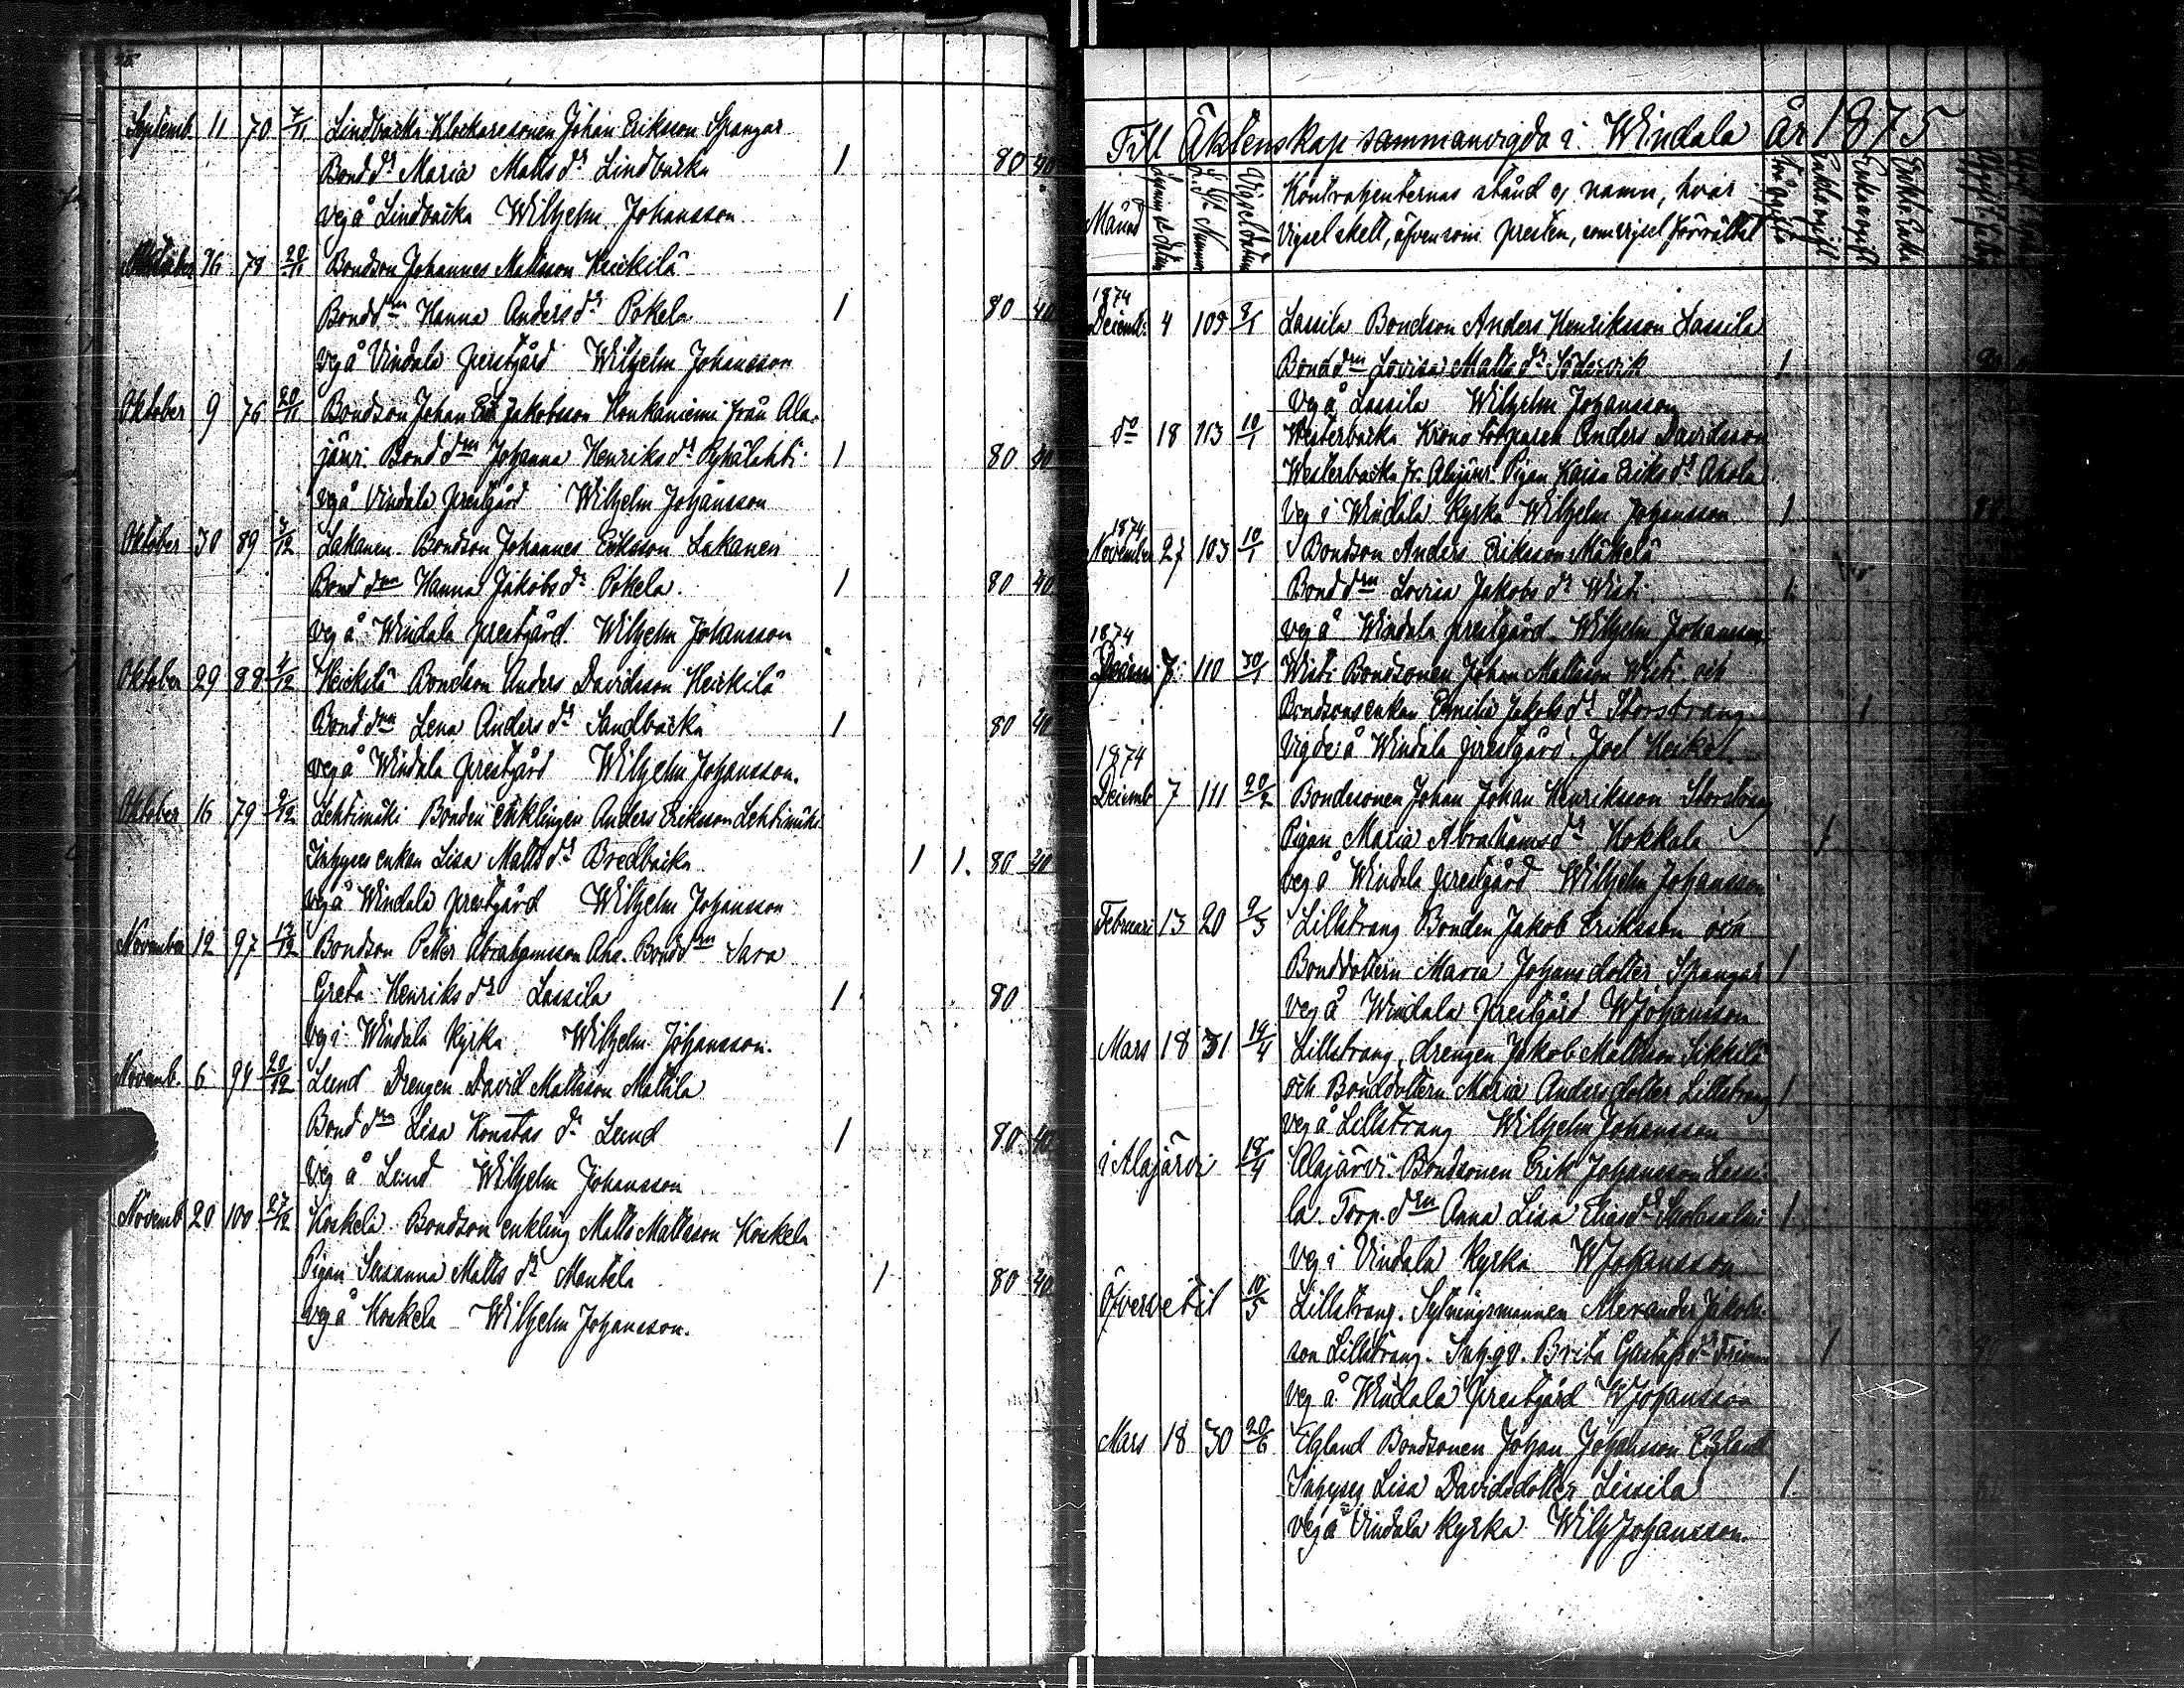 Septemb. 11 70 7/11 Lindbacka Klockaresonen Johan Eriksson Spangar
Bond dr Maria Matts dr Lindbacka 1 80 40
veg å Lindbacka Wilhelm Johansson
Oktober 16 78 20/11 Bondson Johannes Mattsson Heickilä
Bond drn Hanna Anders dr Pokela 1 80 40
veg å Vindala prestgård Wilhelm Johansson
Oktober 9 76 20/11 Bondson Johan Jakobsson Koukaniemi från Ala-
järvi. Bond drn Johanna Henriks dr Pyhälahti 1 80 40
veg å Vindala prestgård Wilhelm Johansson
Oktober 30 89 3/12 Lakanen. Bondson Johannes Eriksson Lakanen
Bond drn Hanna Jakobs dr Pokela. 1 80 40
veg å Windala prestgård. Wilhelm Johansson
Oktober 29 88 4/12 Heickilä Bondson Anders Davidsson Heickilä
Bond drn Lena Anders dr Sandbacka 1 80 40
veg å Windala prestgård Wilhelm Johansson.
Oktober 16 79 9/12 Lehtimäki Bonden enklingen Anders Eriksson Lehtimäki
Inhyses enkan Lisa Matts dr Bredbacka 1 1. 80 40
veg å Windala prestgård Wilhelm Johansson
November 12 97 13/12 Bondson Petter Abrahamsson Aho. Bond drn Sara
Greta Henriks dr Lassila 1 80
veg i Windala kyrka Wilhelm Johansson.
Novemb. 6 94 20/12 Lund Drengen David Mattsson Mattila
Bond drn Lisa Konstas dr Lund 1 80 40
veg å Lund Wilhelm Johansson
Novemb 20 100 27/12 Koskela Bondson enkling Matts Mattsson Koskela
Pigan Susanna Matts dr Mantela 1 80 40
veg å Koskela Wilhelm Johansson.
Till Äktenskap sammanvigda i Windala år 1875
Månad Lysnings datum Nummer Vigsel datum Kontrahenternas stånd o. namn, hvar
vigsel skett, äfvensom presten, som vigsel förrättat
1874
Decemb. 4 109 8/1 Lassila Bondson Anders Henriksson Lassila
Bond drn Lovisa Matts dr Södervik 1
veg å Lassila Wilhelm Johansson
do 18 113 10/1 Westerbacka Krono torparen Anders Davidsson
Westerbacka fr. Alajärvi. Pigan Kaisa Eriks dr Ahola
veg i Windala kyrka Wilhelm Johansson 1
1874
November 27 103 10/1 Bondson Anders Eriksson Mäkelä
Bond drn Lovisa Jakobs dr Wisti 1.
veg å Windala prestgård Wilhelm Johansson
1874
Decemb 7. 110 30/1 Wisti Bondsonen Johan Mattsson Wisti och
Bondsons enkan Emilia Jakobs dr Storstrang 1
vigde å Windala prestgård. Joel Heikel.
1874
Decemb 7 111 20/2 Bondesonen Johan Johan Henriksson Storstrang
Pigan Maria Abrahams dr Kokkala 1
veg å Windala prestgård Wilhelm Johansson
Februari 13 20 9/3 Lillstrang Bonden Jakob Eriksson och
Bonddottern Maria Johansdotter Spangar 1
veg å Windala prestgård WJohansson
Mars 18 31 14/4 Lillstrang, drengen Jakob Mattsson Sikkilä
och Bonddottern Maria Andersdotter Lillstrang 1
veg å Lillstrang Wilhelm Johansson
i Alajärvi 18/4 Alajärvi. Bondsonen Erik Johansson Lassi-
la. Torp. drn Anna Lisa Elias dr 1
veg i Vindala kyrka WJohansson
Öfvervetil 10/5 Lillstrang. Sytningsmannen Alexander Jakobs-
son Lillstrang. Inh.qv. Brita Gustafs dr 1
veg å Windala prestgård WJohansson
Mars 18 30 20/6 Elgland Bondsonen Johan Johansson Elgland
Inhyses Lisa Davidsdotter Lissila 1.
veg å Vindala kyrka Wilh Johansson.